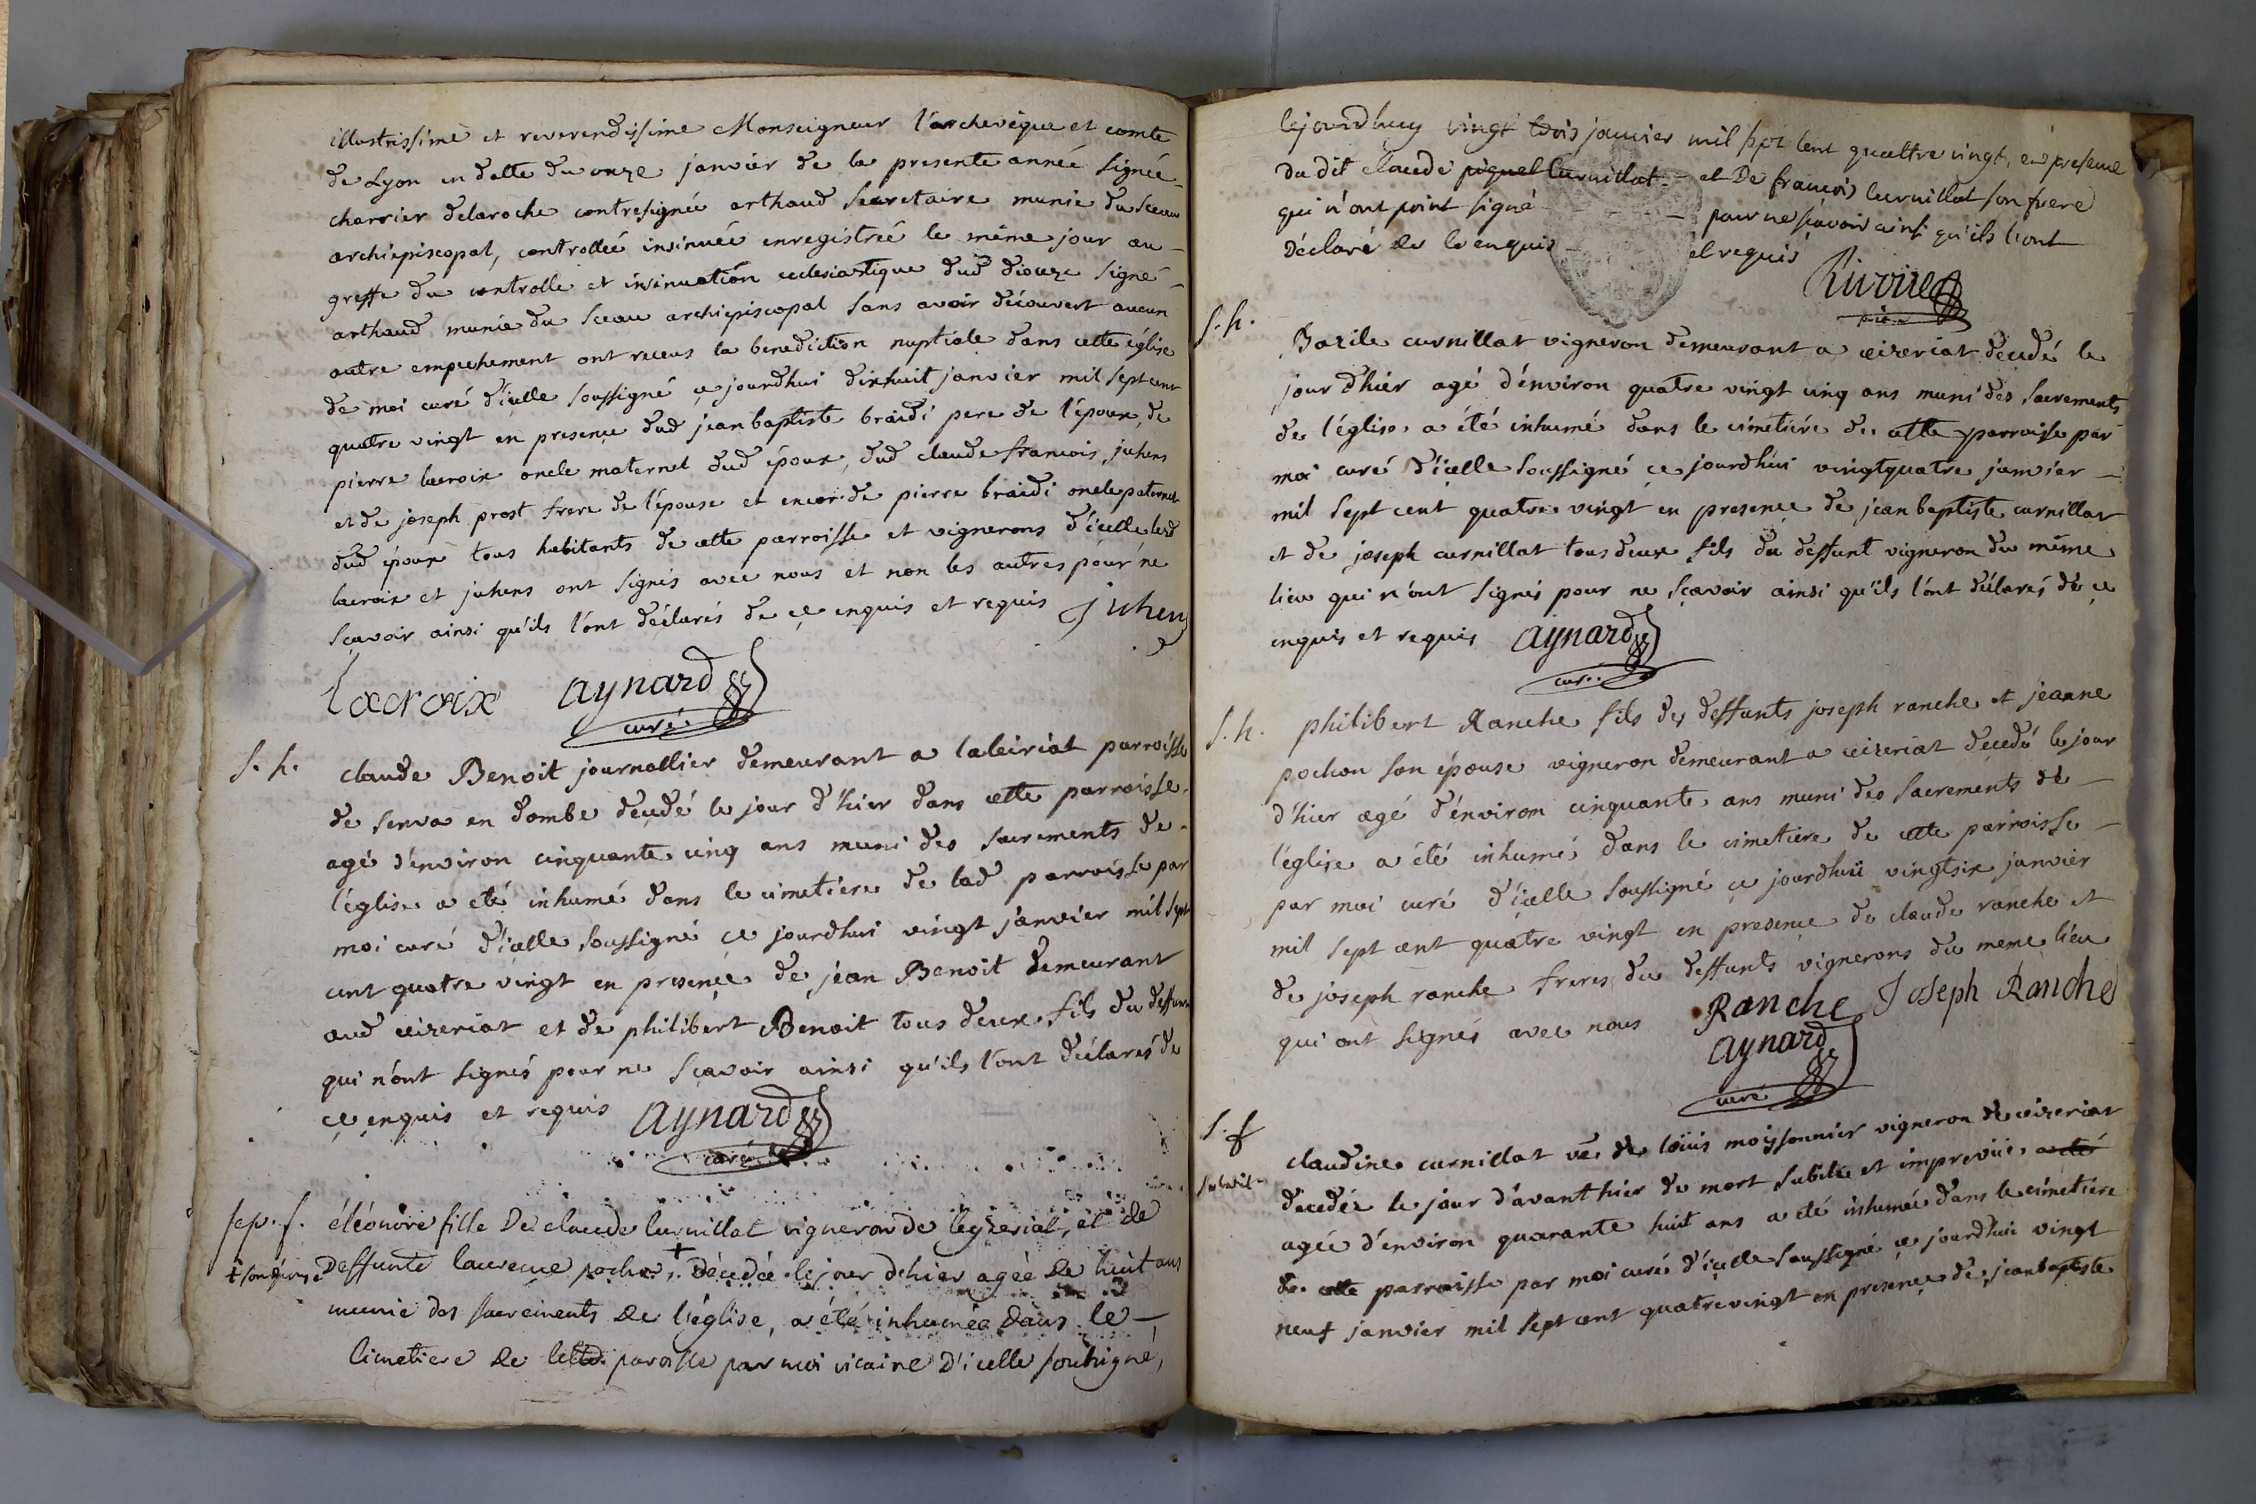 illustrissime et reverendissime Monseigneur l'archevêque et comte
de Lyon en datte du onze janvier de la presente année signée
charrier delaroche contresignée arthaud secretaire munie du sceau
archiepiscopal, controllée insinuée enregistrée le même jour au
greffe du controlle et insinuation ecclesiastique dud dioceze signé
arthaud munie du sceau archiepiscopal sans avoir découvert aucun
autre empechement ont receus la benediction nuptiale dans cette église
de moi curé d'icelle soussigné ce jourdhui dixhuit janvier mil sept cent
quatre vingt en presence dud jean baptiste braidi pere de l'époux, de
pierre lacroix oncle maternel dud époux, dud claude francois juhens
et de joseph prost frere de l'épouse et encor de pierre braidi oncle paternel
dud époux tous habitants de cette parroisse et vignerons d'icelle lesd
lacroix et juhens ont signés avec nous et non les autres pour ne
sçavoir ainsi qu'ils l'ont déclarés de ce enquis et requis Juhens
Lacroix aynard
curé
S. h. claude Benoit journallier demeurant a laleiriat parroisse
de senva en dombe décedé le jour d'hier dans cette parroisse
agé d'environ cinquante cinq ans muni des sacrements de
l'église a eté inhumé dans le cimetiere de lad parroisse par
moi curé d'icelle soussigné ce jourdhui vingt janvier mil sept
cent quatre vingt en presence de jean Benoit demeurant
aud ceizeriat et de philibert Benoit tous deux fils du deffunt
qui n'ont signés pour ne sçavoir ainsi qu'ils l'ont déclarés de
ce enquis et requis aynard
curé
sep. f. éléonore fille De claude Curnillat vigneron de Ceyzeriat, et de
+ son épouse Deffunte laurence pochon + Décedée le jour dhier agée de huit ans
munie des sacrements de l'église, a été inhumée dans le
Cimetiere de cette paroisse par moi vicaire d'icelle souhigné,
Cejourdhuy vingt trois janvier mil sept cent quattre vingt, en presence
du dit claude piquet Curnillat et De francois Curnillat son frere
qui n'ont point signé pour ne sçavoir ainsi qu'ils l'ont
Déclaré de ce enquis et requis

S. h. Bazile curnillat vigneron demeurant a ceizeriat décedé le
jour d'hier agé d'environ quatre vingt cinq ans muni des sacrements
de l'église a été inhumé dans le cimetiére de cette parroisse par
moi curé d'icelle soussigné ce jourdhui vingtquatre janvier
mil sept cent quatre vingt en presence de jean baptiste curnillat
et de joseph curnillat tous deux fils du deffunt vigneron du même
lieu qui n'ont signés pour ne sçavoir ainsi qu'ils l'ont déclarés de ce
enquis et requis aynard
curé
S. h. philibert Ranche fils des deffunts joseph ranche et jeanne
pochon son épouse vigneron demeurant a ceizeriat décedé le jour
d'hier agé d'environ cinquante ans muni des sacrements de
l'église a été inhumé dans le cimetiere de cette parroisse
par moi curé d'icelle soussigné ce jourdhui vingtsix janvier
mil sept cent quatre vingt en presence de claude ranche et
de joseph ranche freres du deffunts vignerons du meme lieu
qui ont signés avec nous Ranche Joseph Ranche
aynard
curé
S. f claudine curnillat ve de loüis moissonnier vigneron de ceizeriat
décedée le jour d'avanthier de mort subite et imprevüe a eté
agée d'environ quarante huit ans a eté inhumée dans le cimetiere
de cette parroisse par moi curé d'icelle soussigné ce jourdhui vingt
neuf janvier mil sept cent quatrevingt en presence de jean baptiste